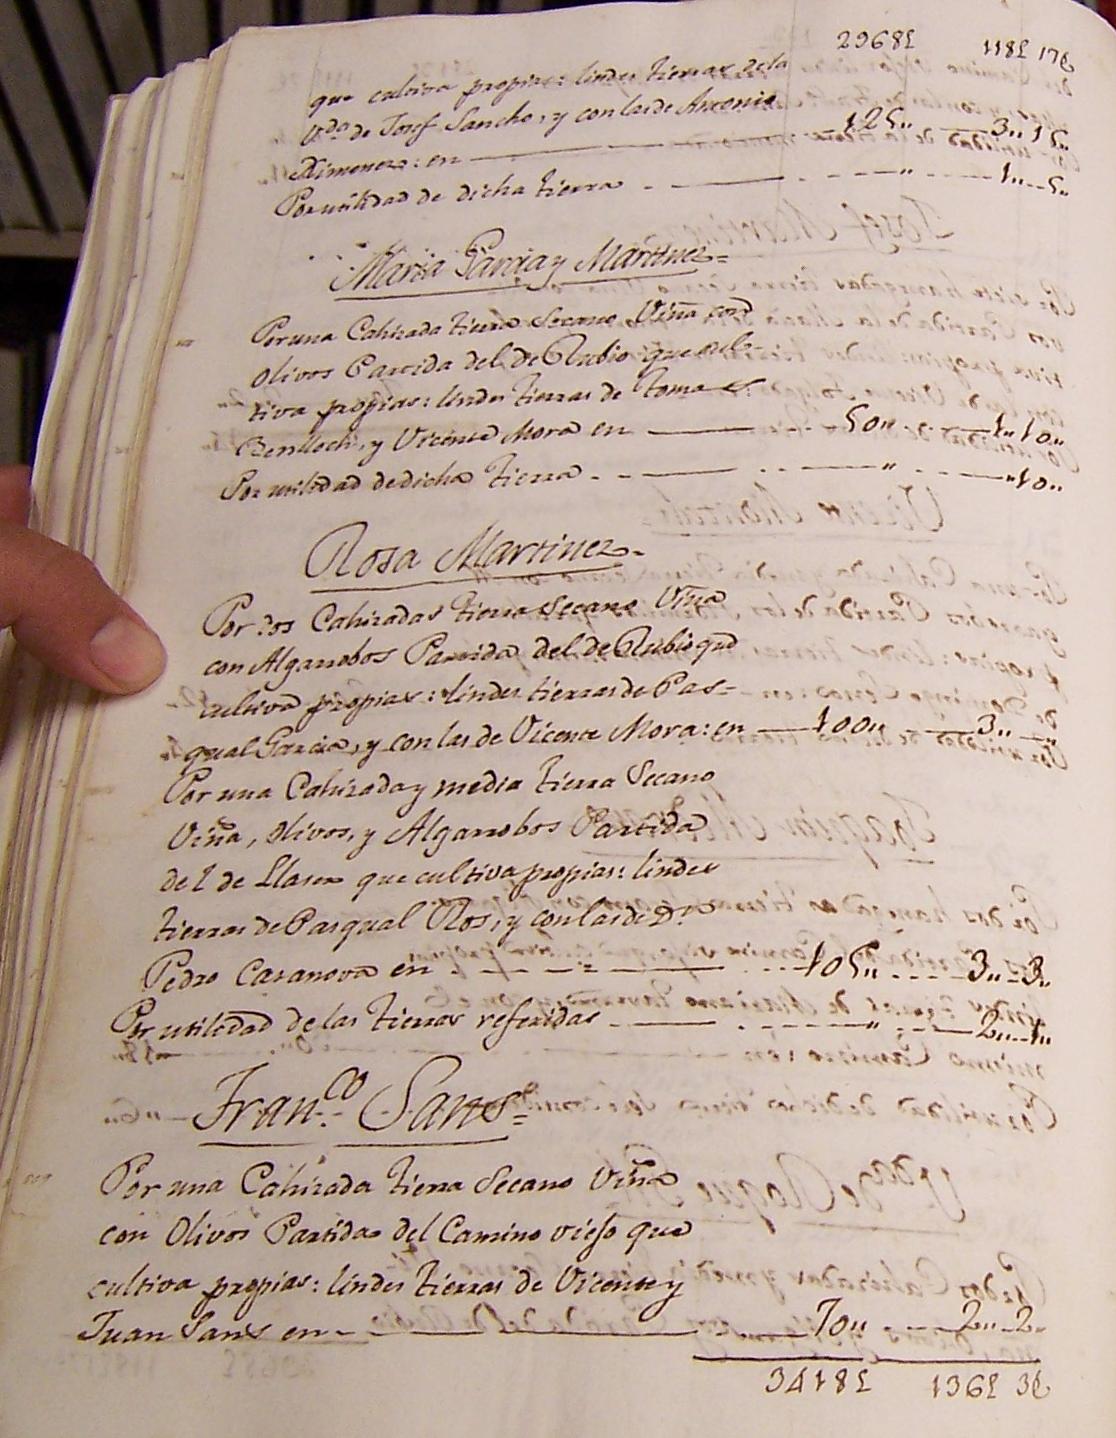 2968£ 118£ 17$
que cultiva propias: lindes tierras dela
V.da de Josef Sancho, y con las de Antonio
Ximenez: en 125,, 3,, 15,,
Por utilidad de dicha tierra ,, 1,, 5,,
Maria Garcia y Martinez=
Por una Cahizada tierra Secano Viña con
Olivos Partida del de Rubio que cul-
tiva propias: lindes tierras de Tomas
Benlloch, y Vicente Mora en 50,, 1,, 10,,
Por utilidad de dicha tierra ,, ,, 10,,
Rosa Martinez
Por dos Cahizadas tierra Secano Viña
con Algarrobos Partida del de Rubio que
cultiva propias: lindes tierras de Pas=
qual Garcia, y con las de Vicente Mora: en 100,, 3,, ,,
Por una Cahizada y media tierra Secano
Viña, Olivos, y Algarrobos Partida
del de Llaser que cultiva propias: lindes
tierras de Pasqual Ros, y con las de D.n
Pedro Casanova en 105,, 3,, 3,,
Por utilidad de las tierras referidas ,, 2,, 1,,
Fran.co Sans=
Por una Cahizada tierra Secano Viña
con Olivos Partida del Camino viejo que
cultiva propias: lindes tierras de Vicente y
Juan Sans en 70,, 2,, 2
3418£ 136£ 3$